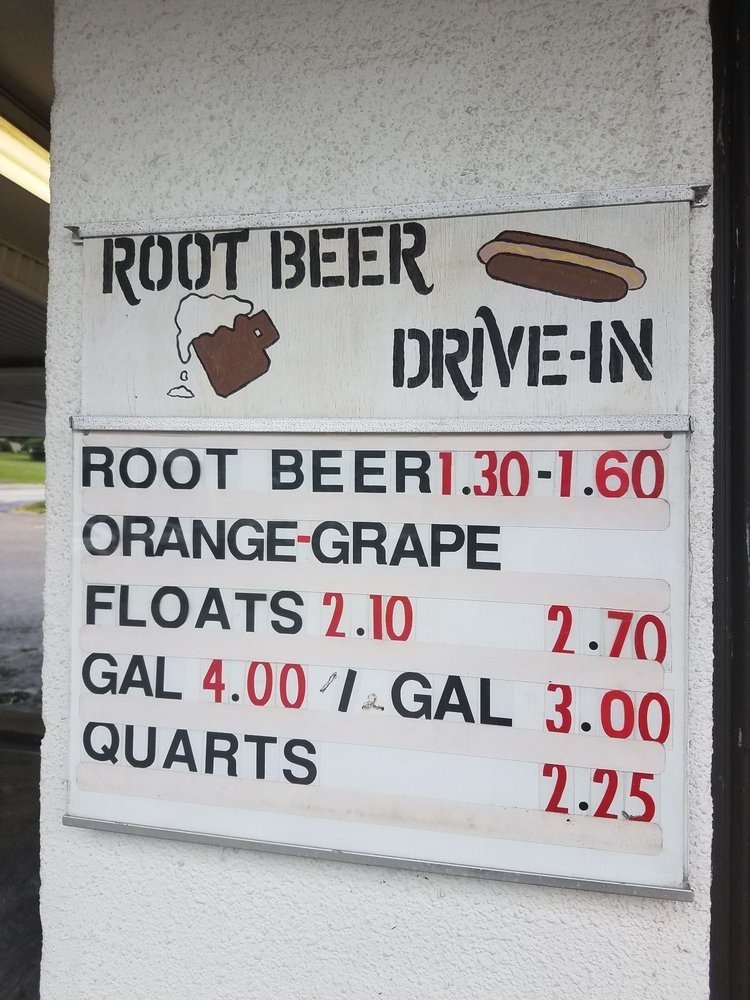 ROOT BEER
DRIVE-IN
ROOT BEER 1.30-1.60
ORANGE-GRAPE
FLOATS 2.10 2.70
GAL 4.00 1/2 GAL 3.00
QUARTS 2.25